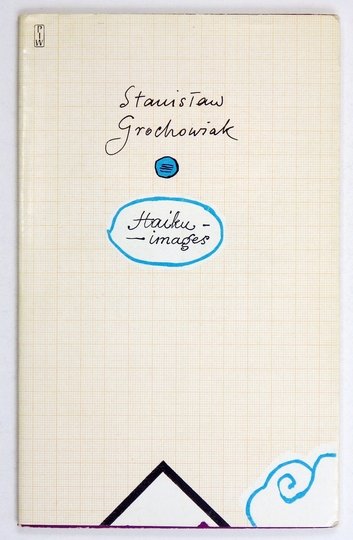 PIW
Stanisław
Grochowiak
Haiku-
-images